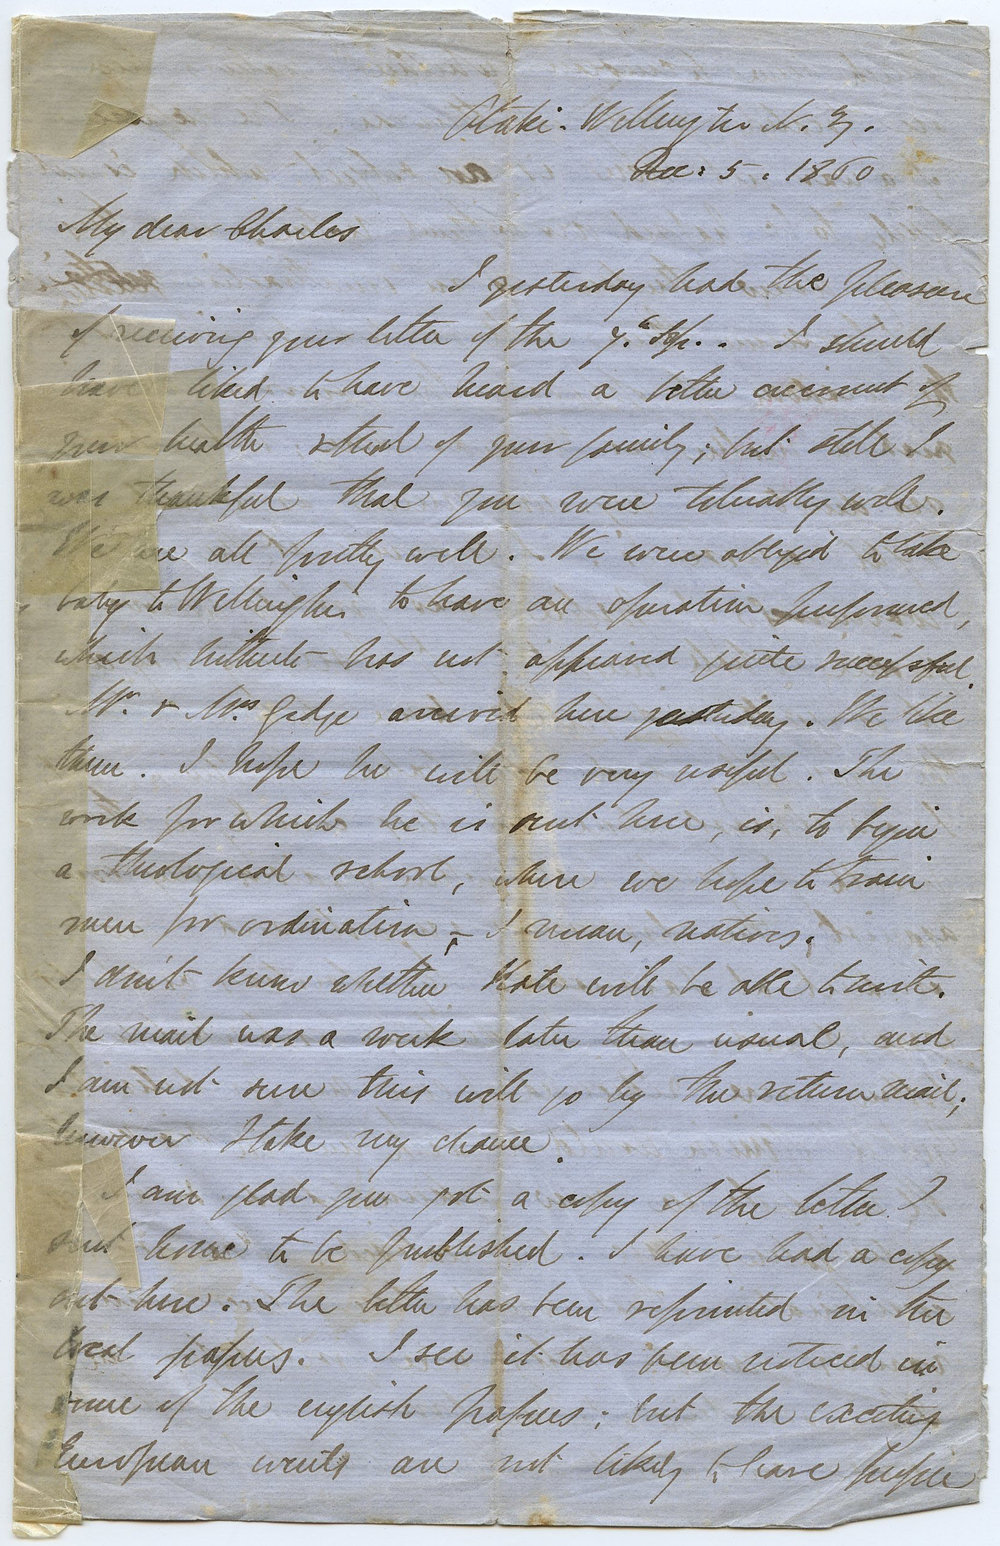 Otaki. Wellington N. Z.
Dec: 5. 1860
My dear Charles
I yesterday had the pleasure
of receiving your letter of the 7th Sep.. I should
have liked to have heard a better account of
your health & that of your family; but still I
was thankful that you were tolerably well.
We are all pretty well. We were obliged to take
baby to Wellington to have an operation performed,
which hitherto has not appeared quite successful.
Mr. & Mrs Gedge arrived here yesterday. We like
them. I hope he will be very useful. The
work for which he is sent here, is, to begin
a theological school, where we hope to train
men for ordination, - I mean, natives.
I don't know whether Kate will be able to write.
The mail was a week later than usual, and
I am not sure this will go by the return mail;
however I take my chance.
I am glad you got a copy of the letter I
sent home to be published. I have had a copy
out here. The letter has been reprinted in the
local papers. I see it has been noticed in
some of the english papers; but the exciting
European events are not likely to leave people